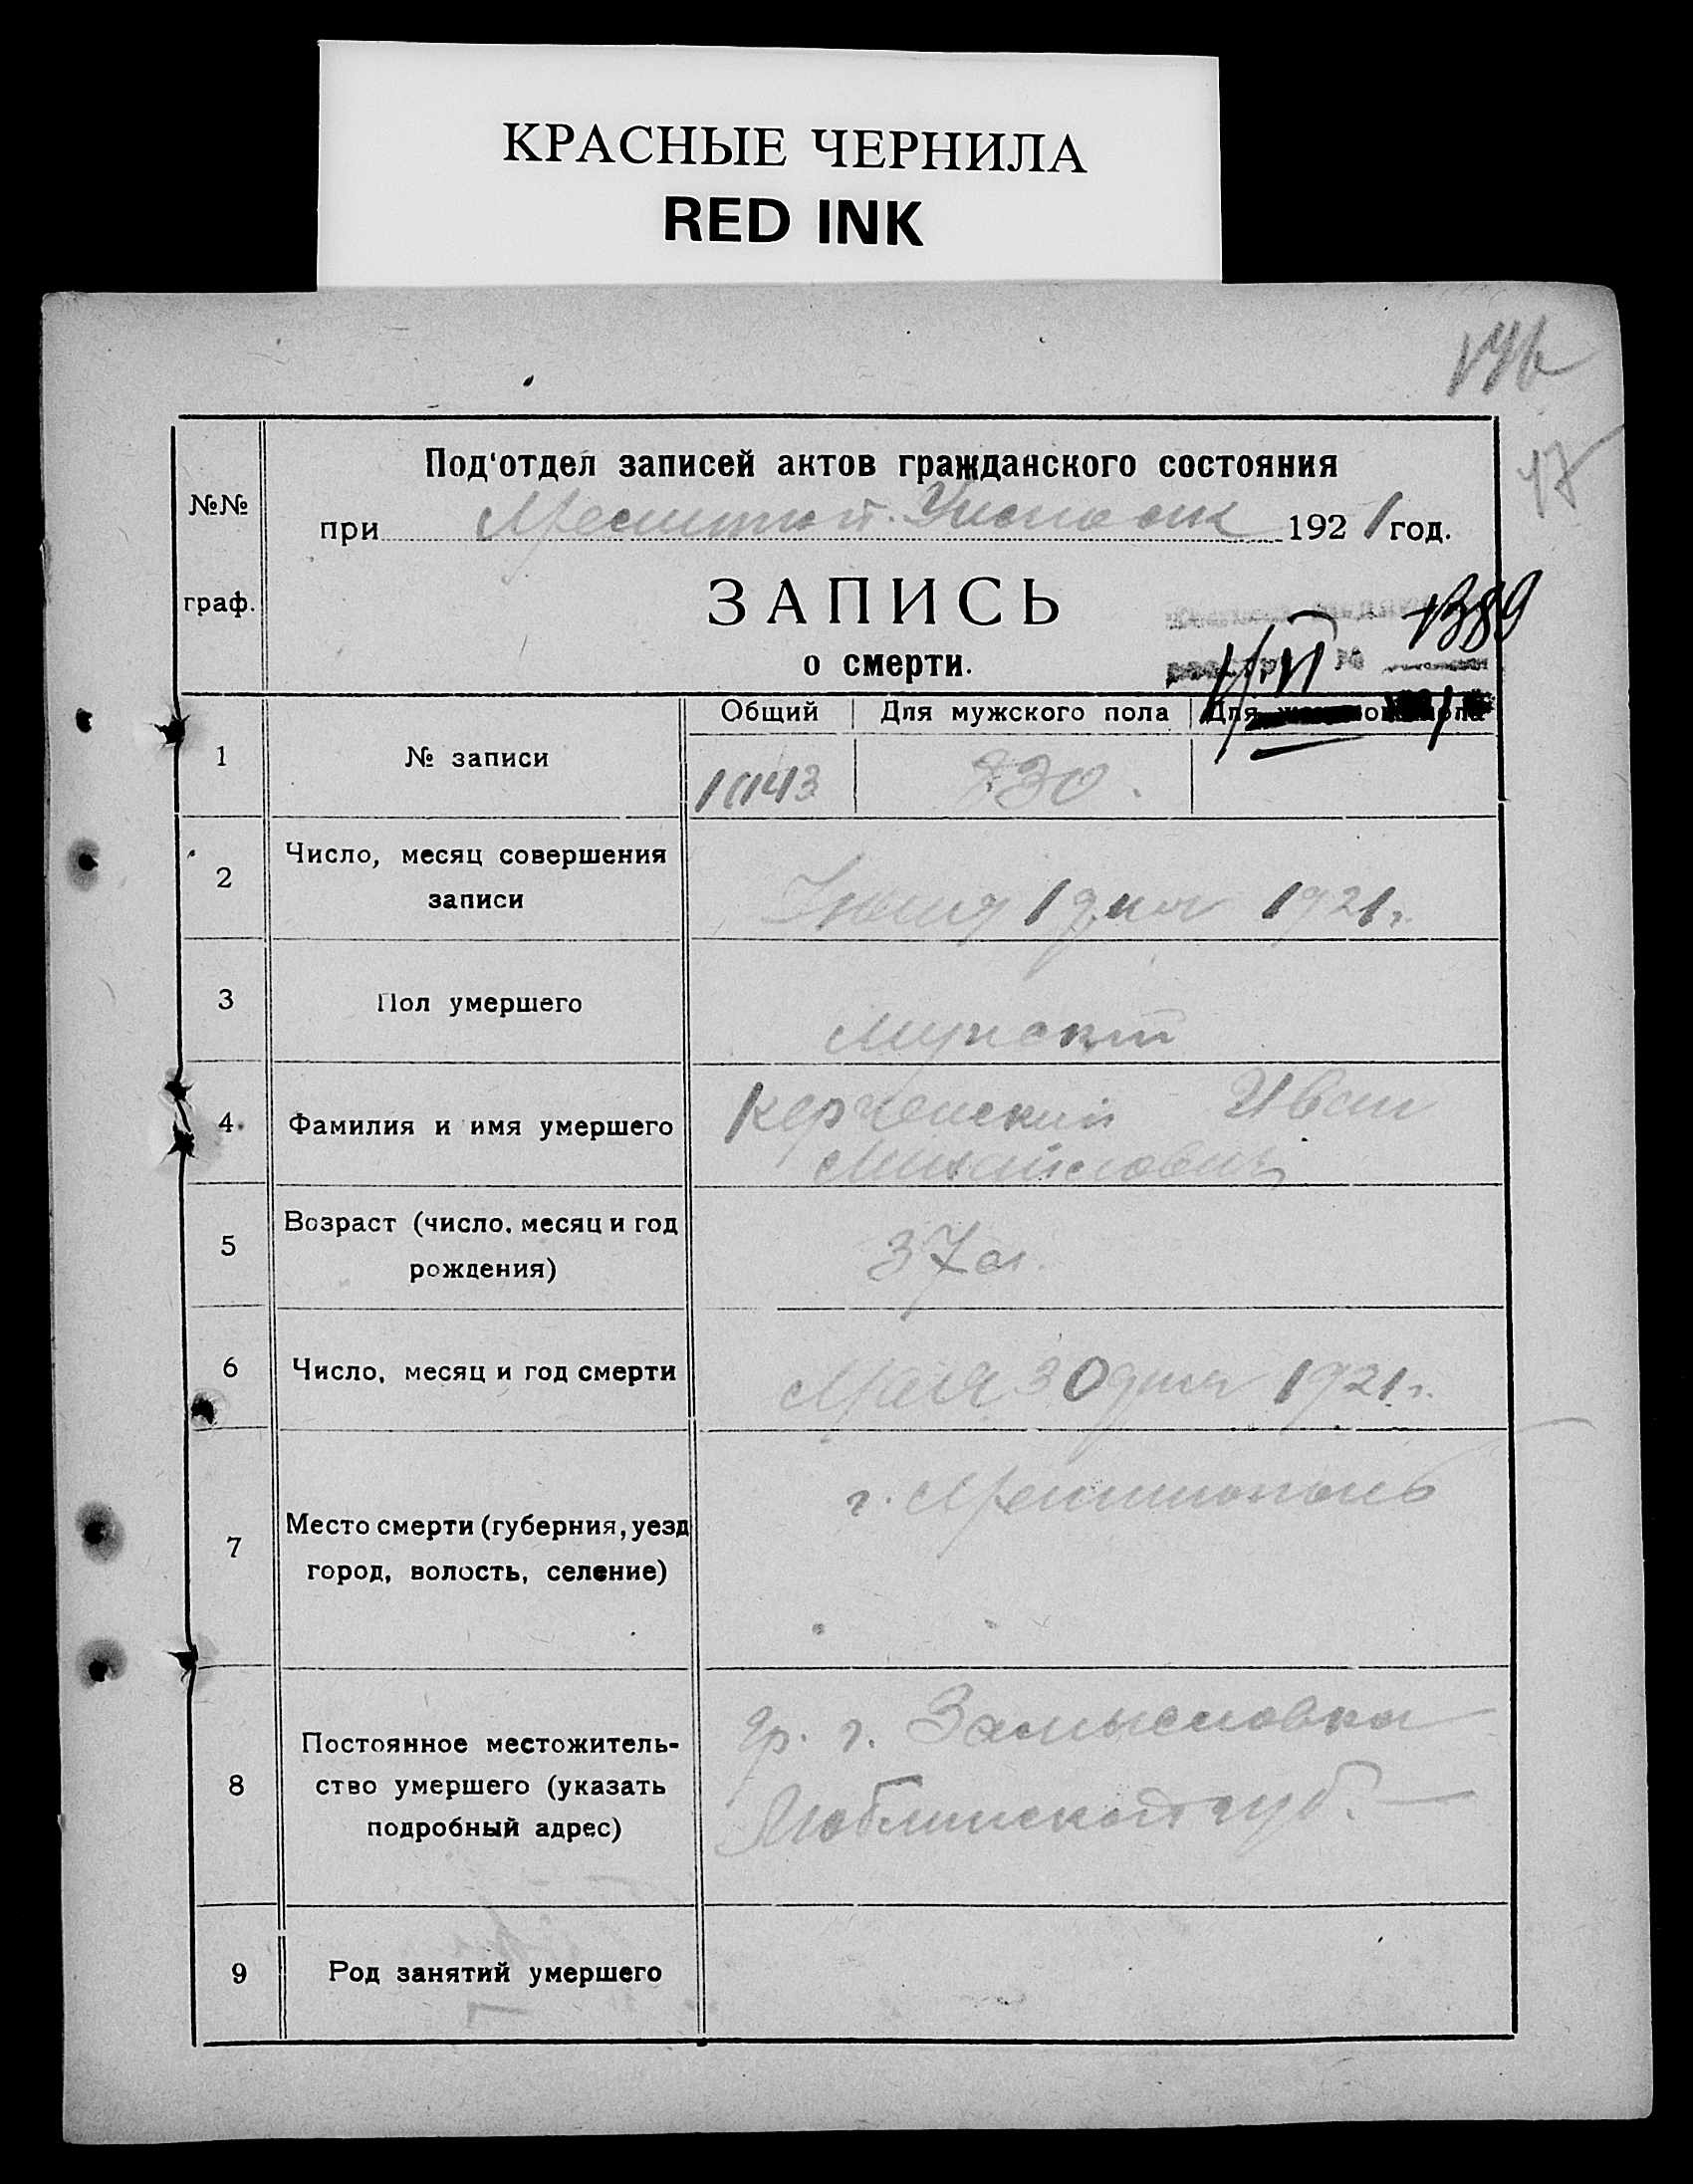 КРАСНЫЕ ЧЕРНИЛА
RED INK
17
Под'отдел записей актов гражданского состояния
№№
при 1921 год.
граф.
ЗАПИСЬ
1389
о смерти.
Общий Для мужского пола Для
1 № записи 830.
2 Число, месяц совершения
записи
Июня 1 дня 1921 г.
3 Пол умершего
Мужской
4. Фамилия и имя умершего
Иван
Михайлович
5 Возраст (число, месяц и год
рождения)
37 л.
6 Число, месяц и год смерти
Мая 30 дня 1921 г.
7 Место смерти (губерния, уезд
город, волость, селение)
г. Мелитополь
8 Постоянное местожитель-
ство умершего (указать
подробный адрес)
гр. г.
Люблинской губ.
9 Род занятий умершего